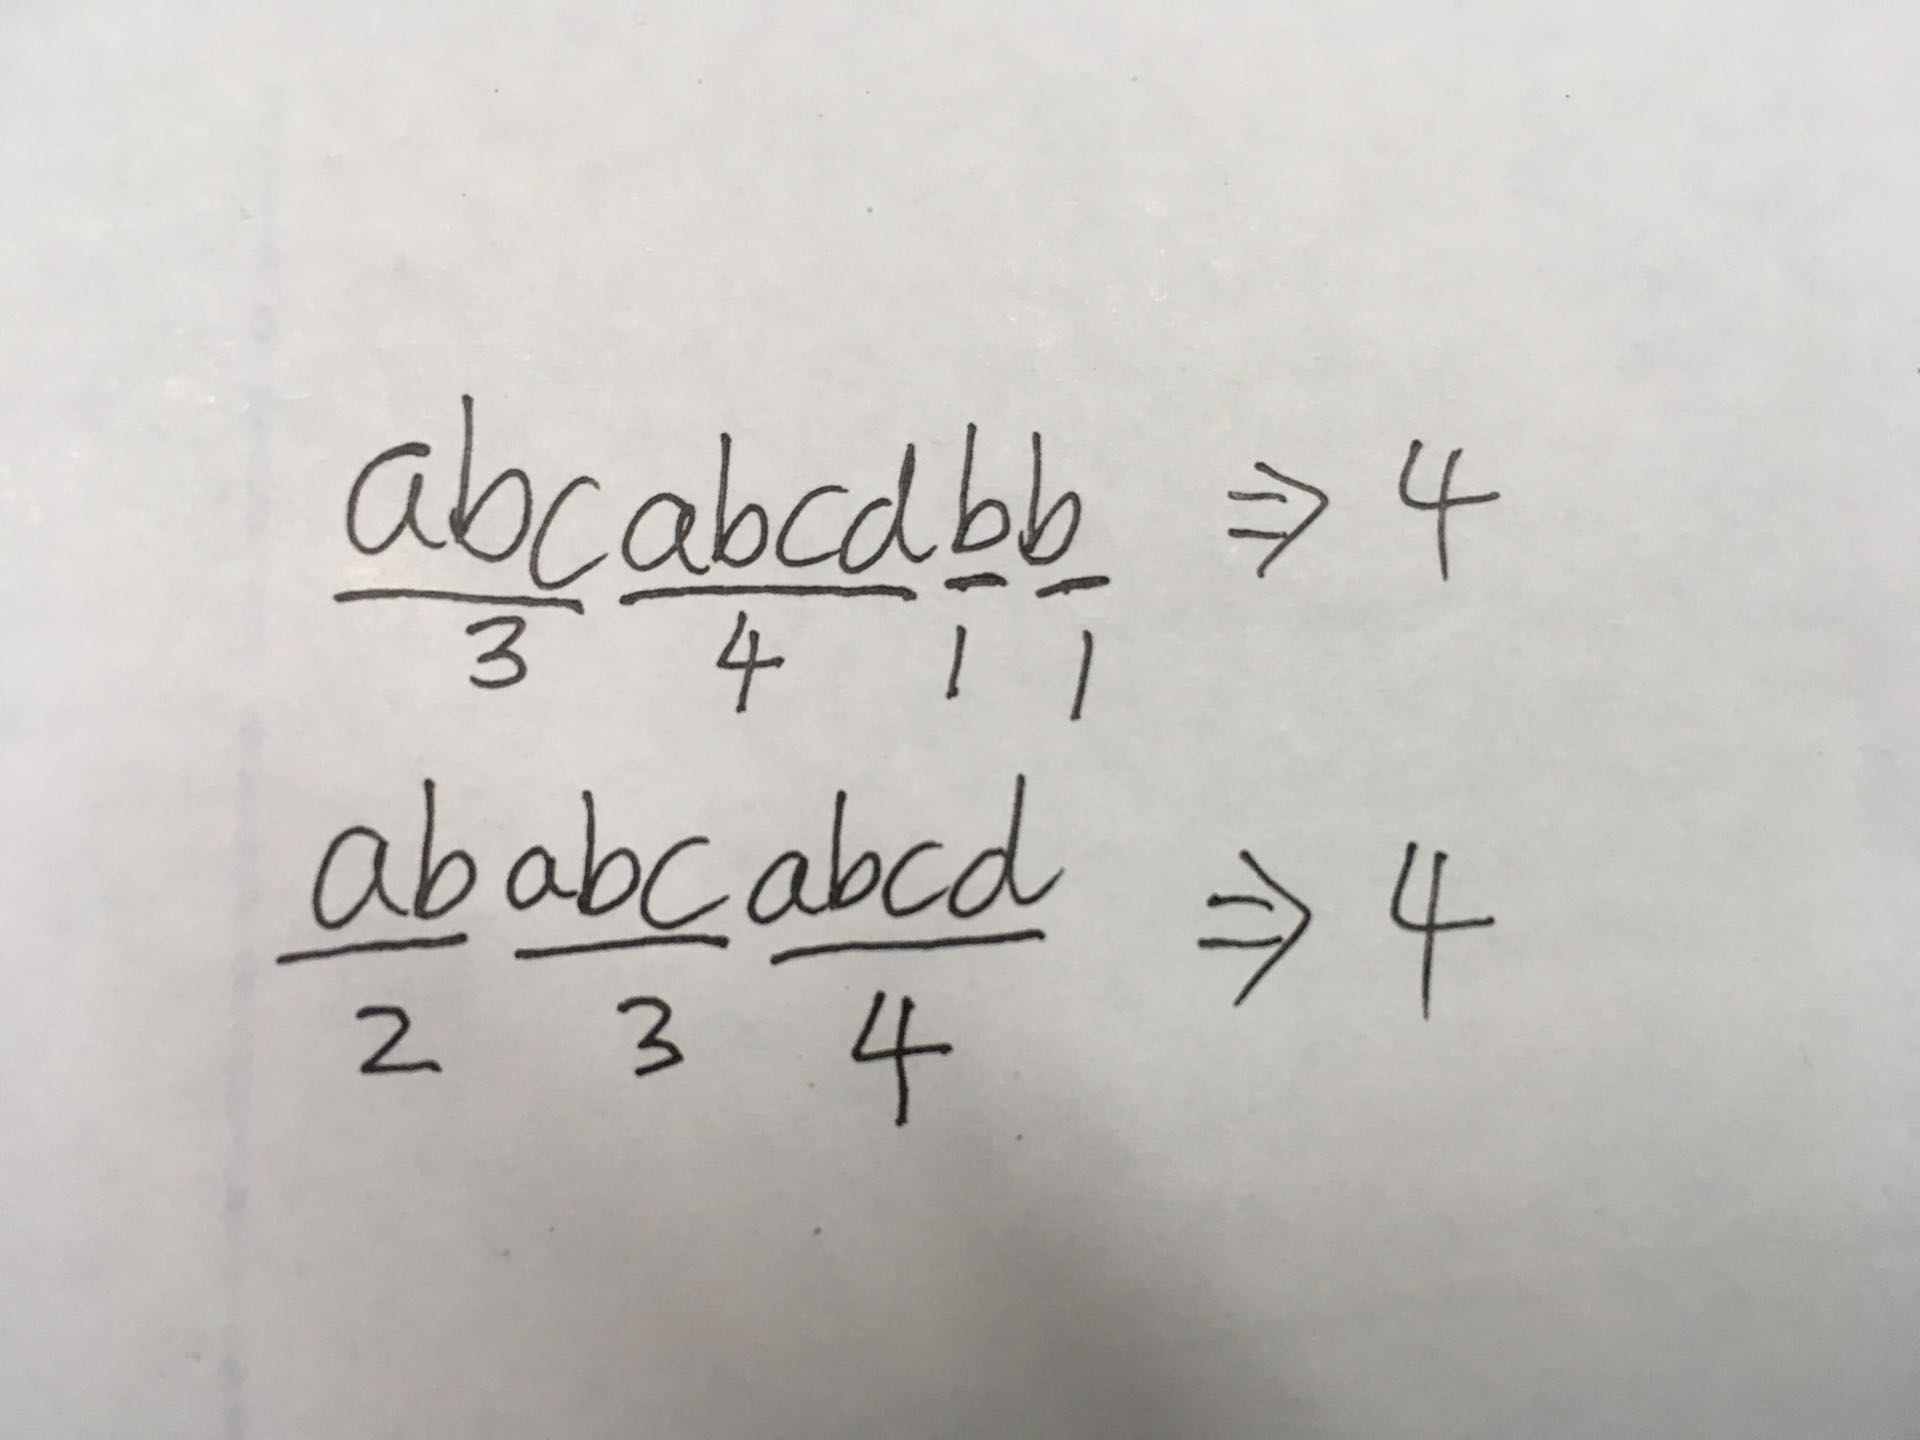 abc abcd b b ⇒ 4
3 4 1 1
ab abc abcd ⇒ 4
2 3 4